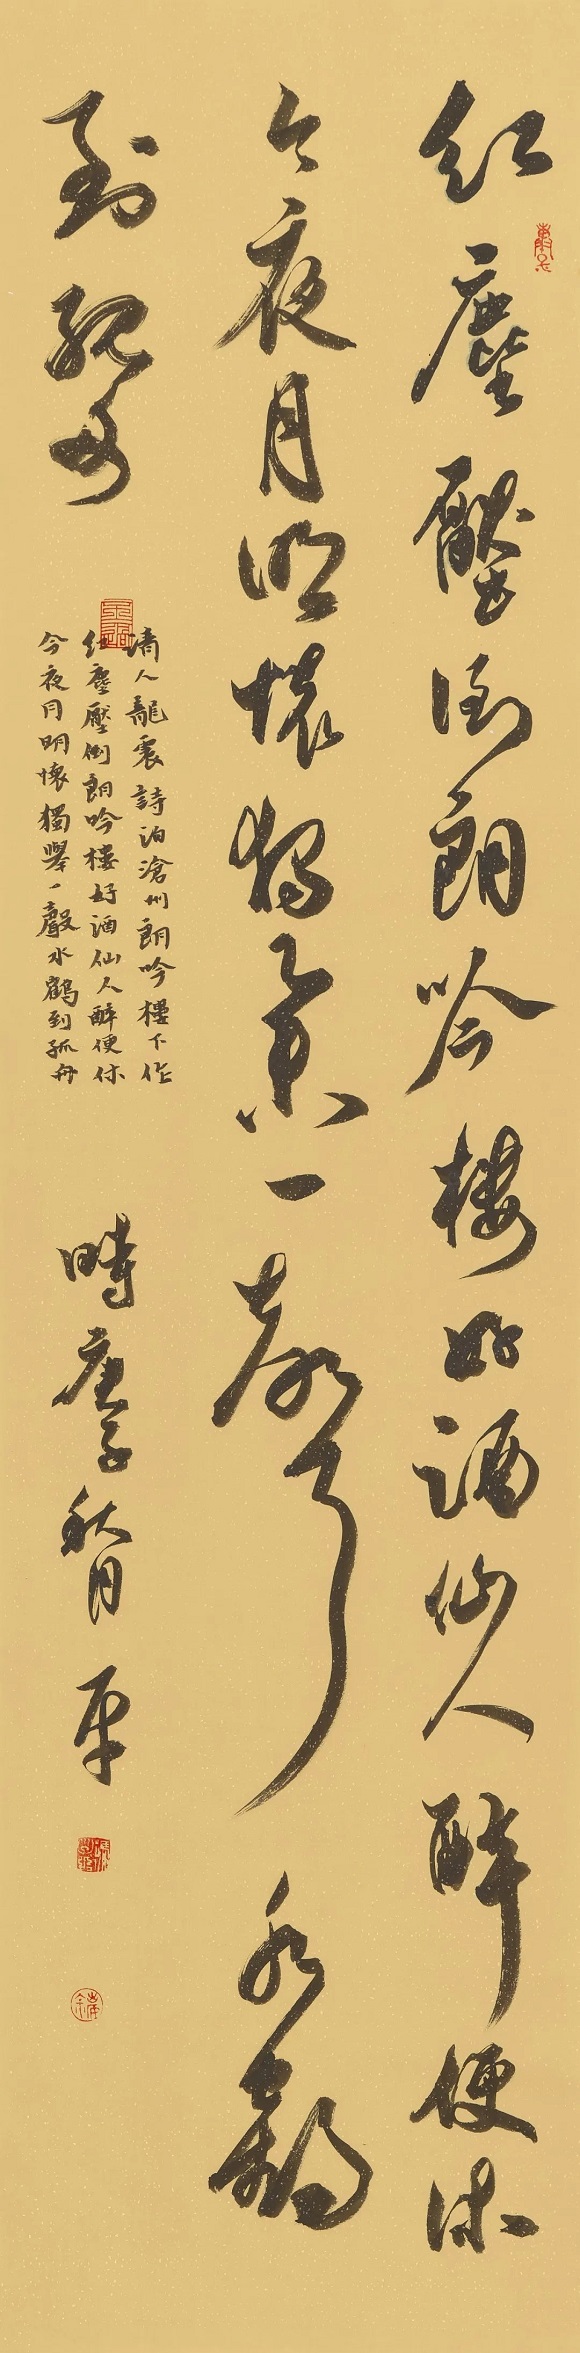 红塵壓倒朗吟樓好酒仙人醉便休
今夜月明懷獨舉一聲水鶴
到孤舟
清人龍震詩泊滄州朗吟樓下作
红塵壓倒朗吟樓好酒仙人醉便休
今夜月明懷獨舉一聲水鶴到孤舟
時庚子秋月
平